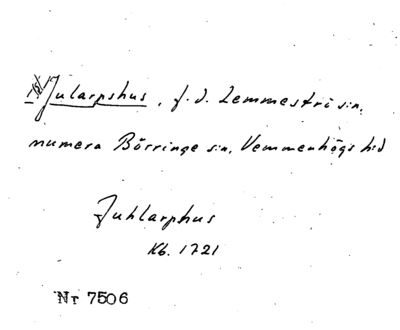 1/6 Jularpshus, f.d. Lemmeströ sn,
numera Börringe sn, Vemmenhögs hd
Juhlarphus
Kb. 1721
Nr 7506